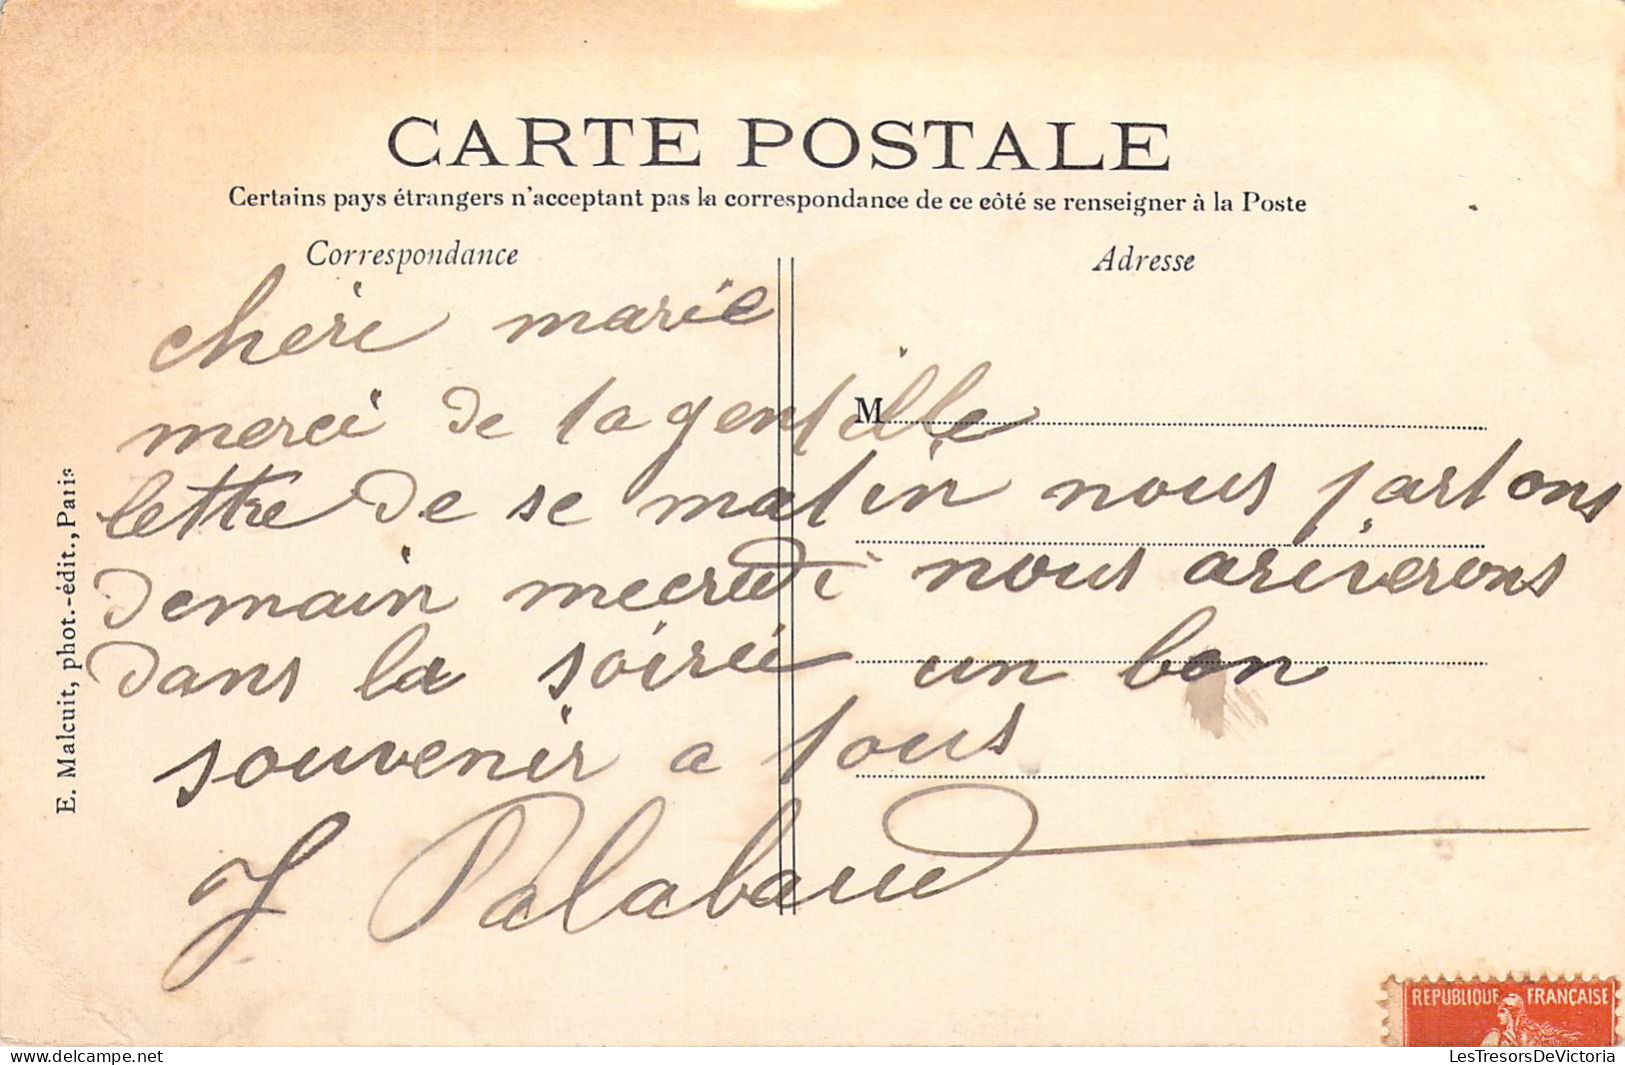 CARTE POSTALE
Certains pays étrangers n'acceptant pas la correspondance de ce côté se renseigner à la Poste
Correspondance
Adresse
cheri marie
merci de ta gentille
M
lettre de se matin nous partons
demain mecredi nous ariverons
dans la soirée un bon
souvenir a tous
J Palabaud
E. Malcuit, phot.-édit., Paris
REPUBLIQUE FRANÇAISE
LesTresorsDeVictoria